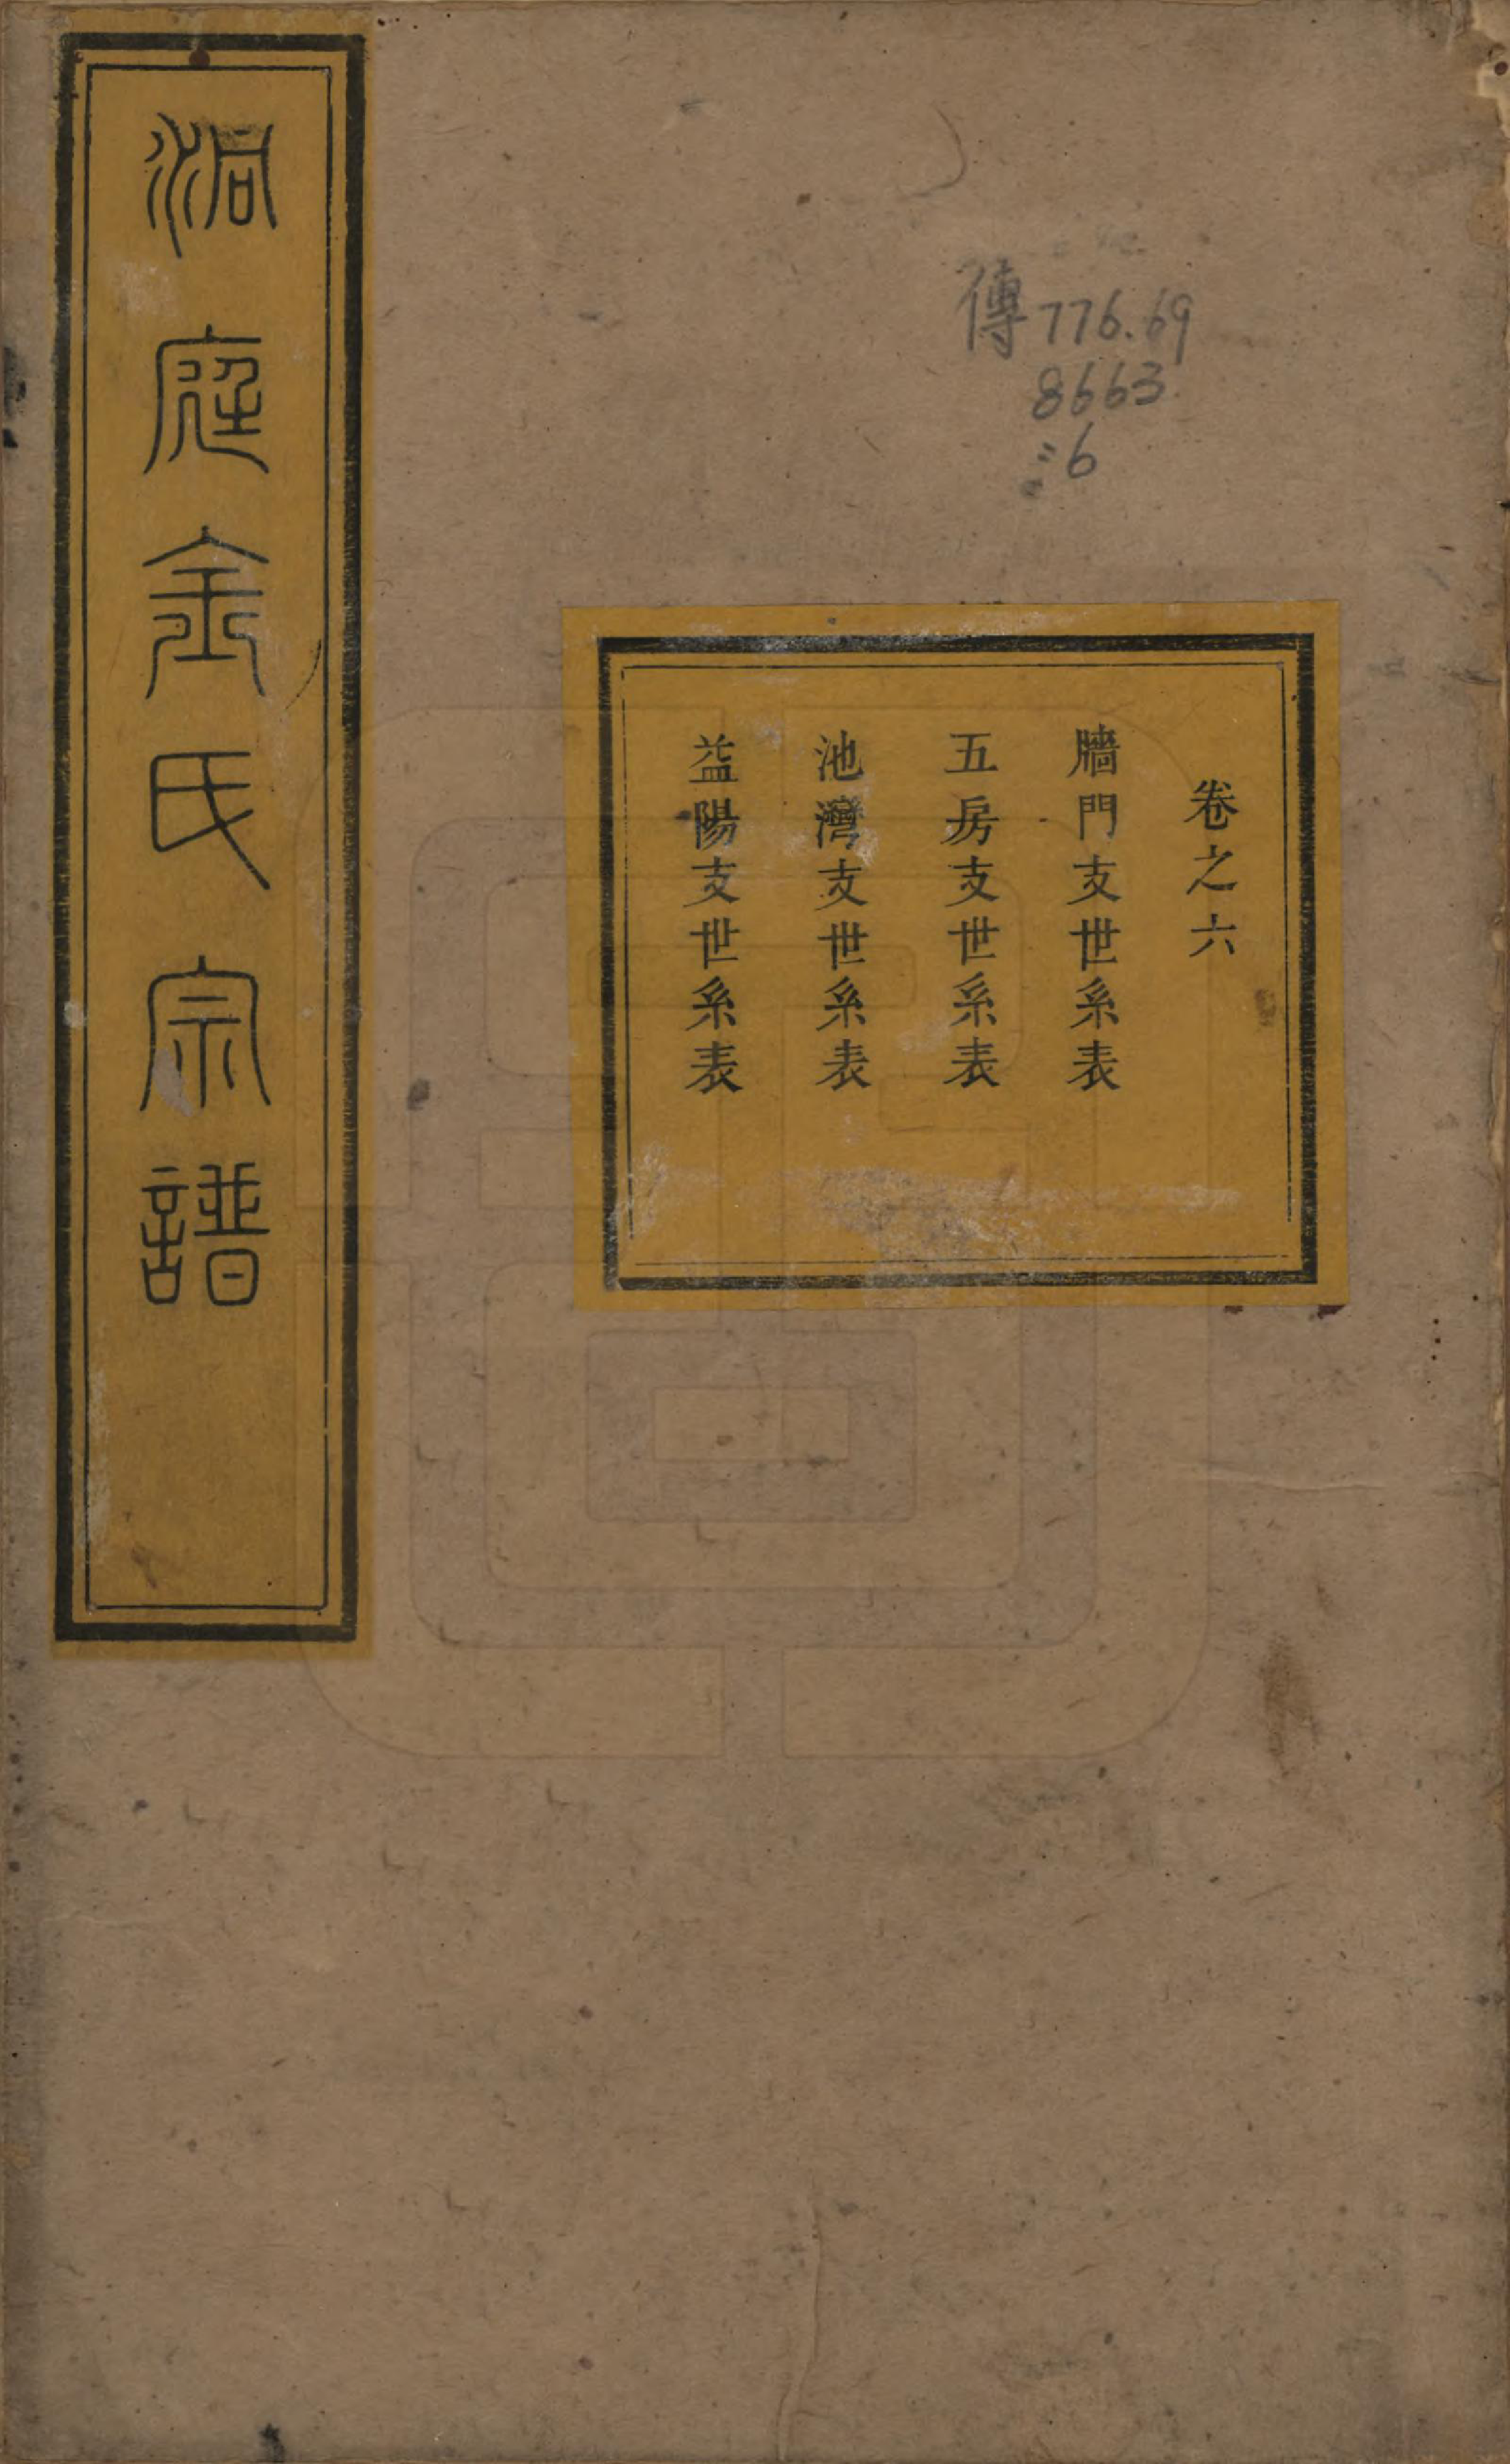 洞庭金氏宗譜
傳776.69
8663
:6
卷之六
牆門支世系表
五房支世系表
池灣支世系表
益陽支世系表